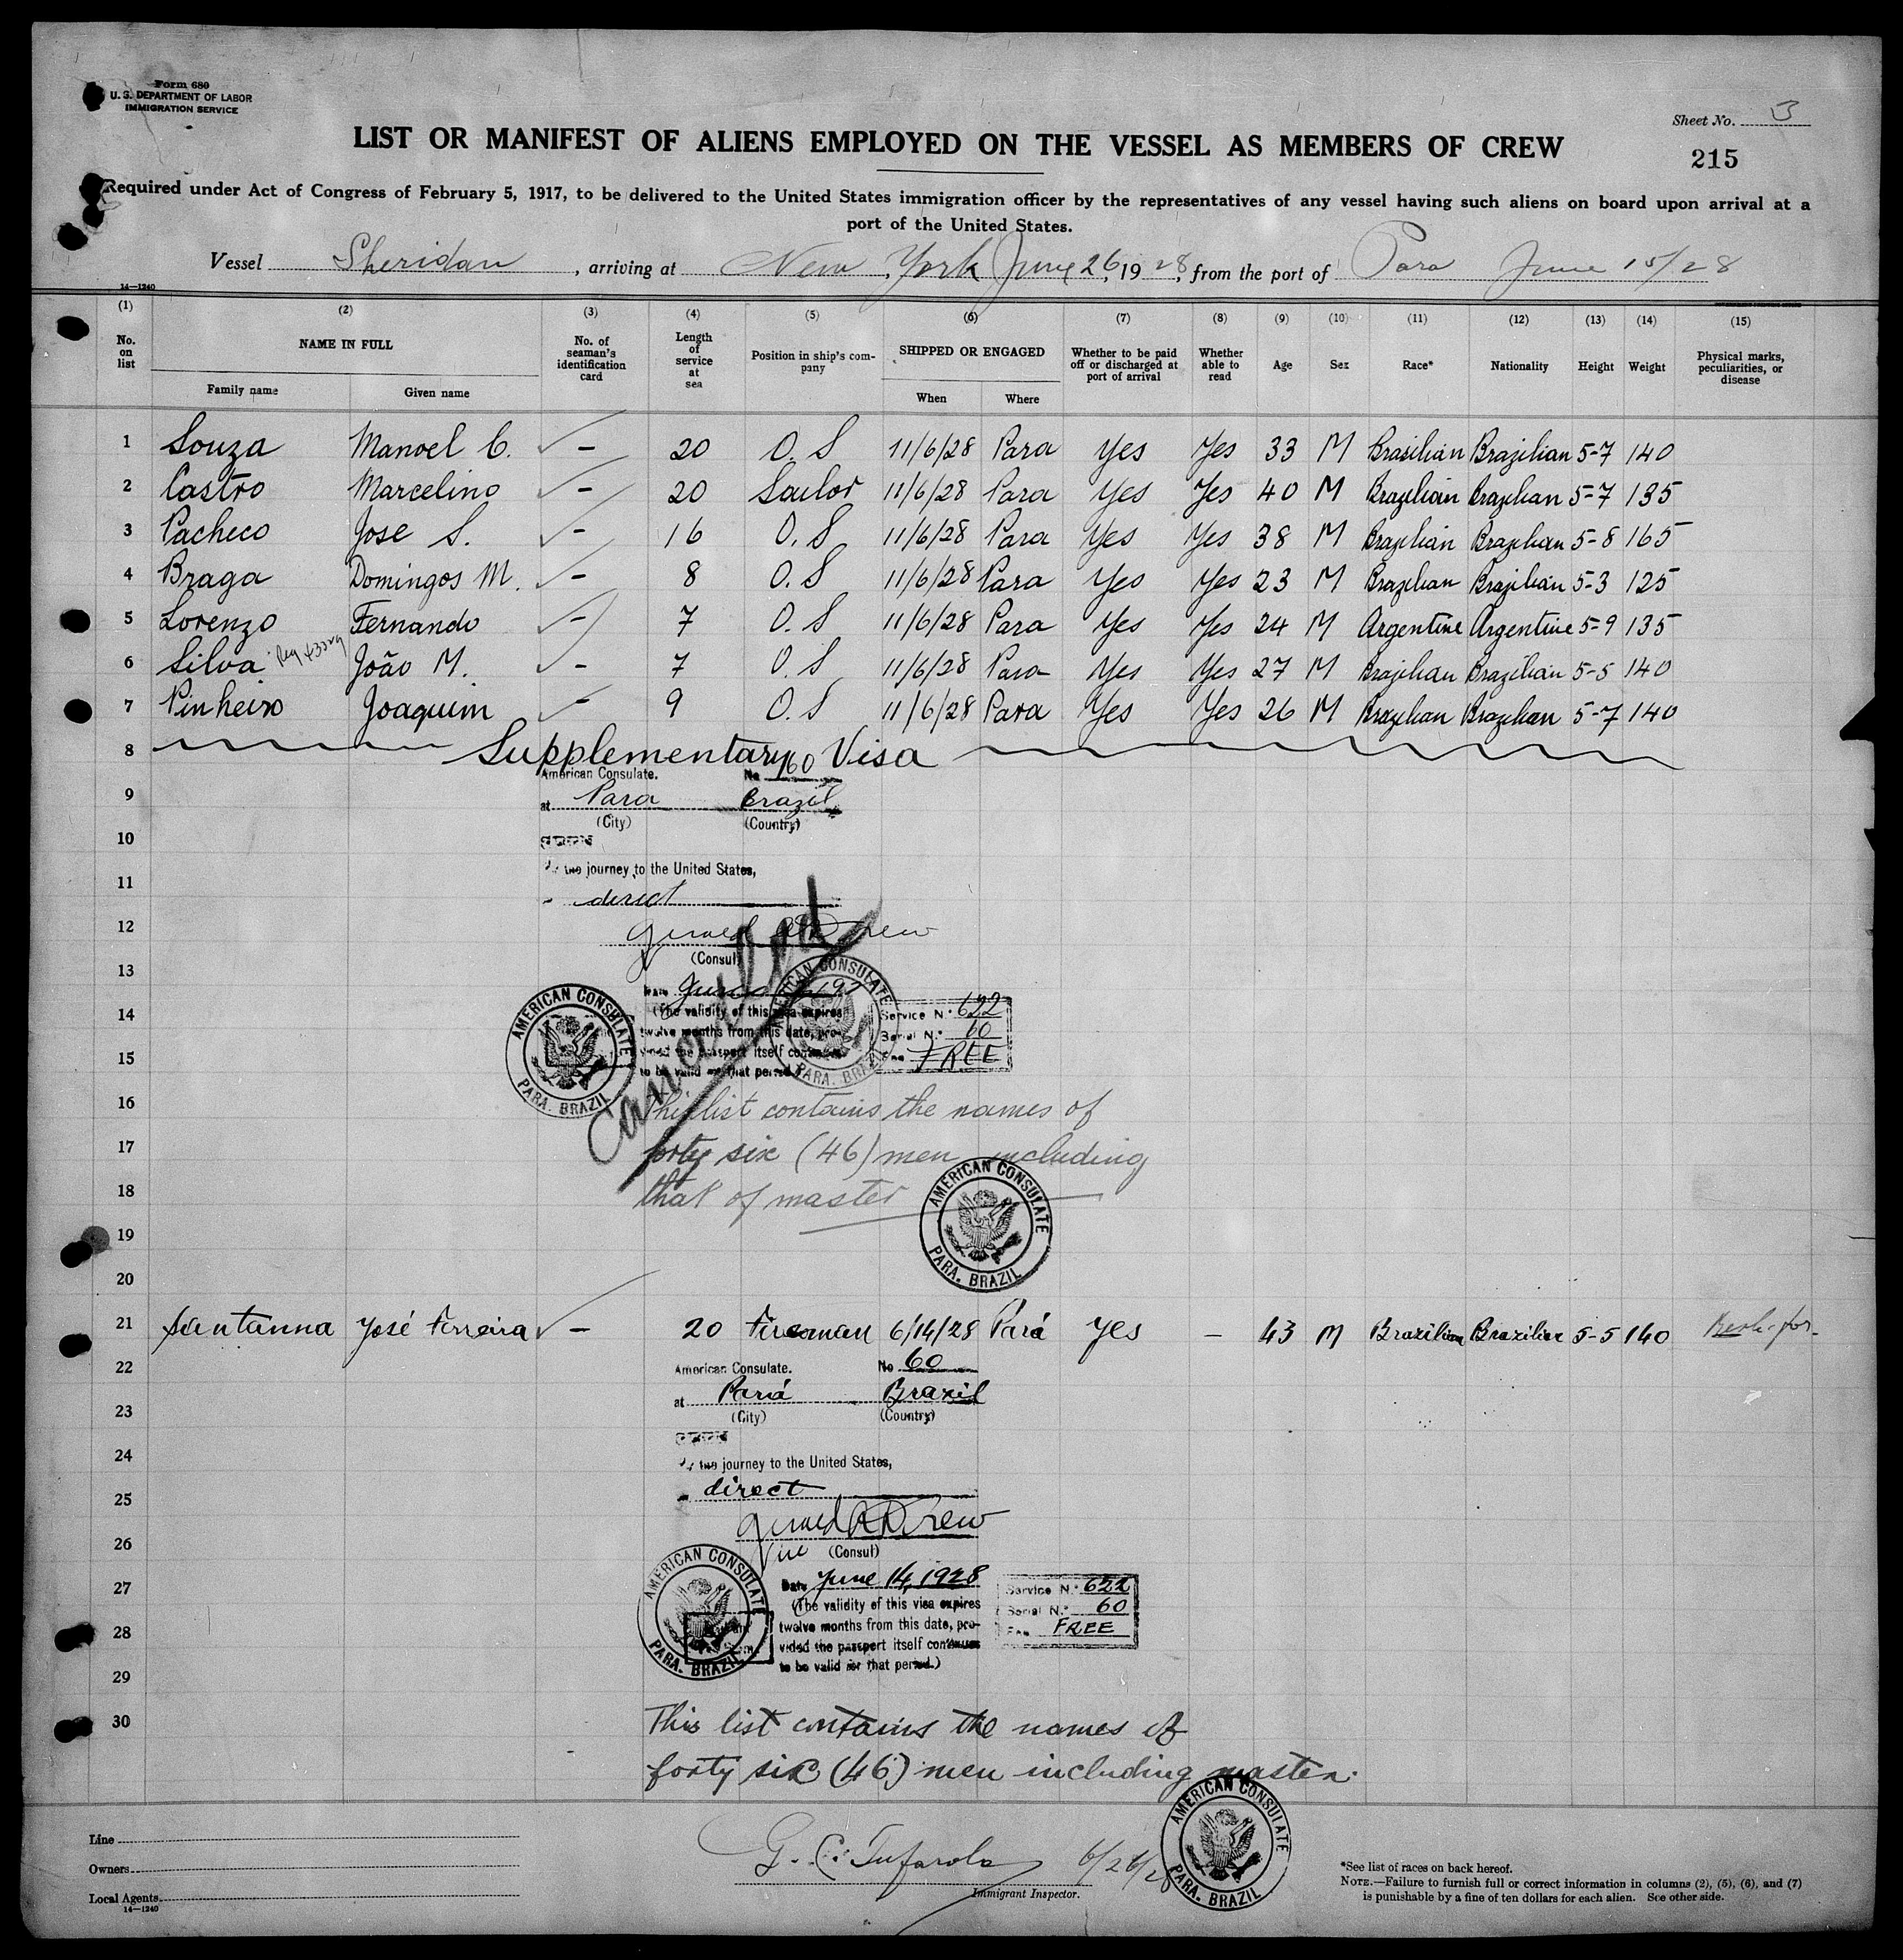 Form 680
U. S. DEPARTMENT OF LABOR
IMMIGRATION SERVICE
Sheet No. 3
LIST OR MANIFEST OF ALIENS EMPLOYED ON THE VESSEL AS MEMBERS OF CREW
215
Required under Act of Congress of February 5, 1917, to be delivered to the United States immigration officer by the representatives of any vessel having such aliens on board upon arrival at a
port of the United States.
Vessel Sheridan, arriving at New York June 26, 1928, from the port of Para June 15/28
14—1240
(1) (2) (3) (4) (5) (6) (7) (8) (9) (10) (11) (12) (13) (14) (15)
No. on list NAME IN FULL Family name Given name No. of seaman's identification card Length of service at sea Position in ship's company SHIPPED OR ENGAGED When Where Whether to be paid off or discharged at port of arrival Whether able to read Age Sex Race* Nationality Height Weight Physical marks, peculiarities, or disease
1 Souza Manoel C. – 20 O. S 11/6/28 Para Yes Yes 33 M Brasilian Brazilian 5-7 140
2 Castro Marcelino – 20 Sailor 11/6/28 Para Yes Yes 40 M Brazilian Brazilian 5-7 135
3 Pacheco Jose S. – 16 O. S 11/6/28 Para Yes Yes 38 M Brazilian Brazilian 5-8 165
4 Braga Domingos M. – 8 O. S 11/6/28 Para Yes Yes 23 M Brazilian Brazilian 5-3 125
5 Lorenzo Fernando – 7 O. S 11/6/28 Para Yes Yes 24 M Argentine Argentine 5-9 135
6 Silva João M. – 7 O. S 11/6/28 Para Yes Yes 27 M Brazilian Brazilian 5-5 140
7 Pinheiro Joaquim – 9 O. S 11/6/28 Para Yes Yes 26 M Brazilian Brazilian 5-7 140
8 Supplementary Visa
American Consulate. No 60
9 at Para Brazil
(City) (Country)
10 SEEN
the journey to the United States,
11 direct
12 Gerald A Drew
(Consul)
13 Date June
Cancelled
14 (The validity of this visa expires
twelve months from this date, pro-
15 vided the passport itself continues
to be valid for that period.)
Service N.º 622
Serial N.º 60
Fee FREE
AMERICAN CONSULATE
PARA. BRAZIL
AMERICAN CONSULATE
PARA. BRAZIL
16 This list contains the names of
17 forty six (46) men including
18 that of master
AMERICAN CONSULATE
PARA. BRAZIL
19
20
21 Santanna José Ferreira – 20 Fireman 6/14/28 Pará Yes – 43 M Brazilian Brazilian 5-5 140
22 American Consulate. No 60
at Pará Brazil
23 (City) (Country)
SEEN
24 the journey to the United States,
25 direct
Gerald A Drew
26 Vice (Consul)
27 Date June 14, 1928
(The validity of this visa expires
28 twelve months from this date, pro-
vided the passport itself continues
29 to be valid for that period.)
Service N.º 622
Serial N.º 60
Fee FREE
AMERICAN CONSULATE
PARA. BRAZIL
30 This list contains the names of
forty six (46) men including master.
AMERICAN CONSULATE
PARA. BRAZIL
Line
Owners
Local Agents
14—1240
G. C. Tufarolo 6/26/28
Immigrant Inspector.
*See list of races on back hereof.
NOTE.—Failure to furnish full or correct information in columns (2), (5), (6), and (7)
is punishable by a fine of ten dollars for each alien. See other side.